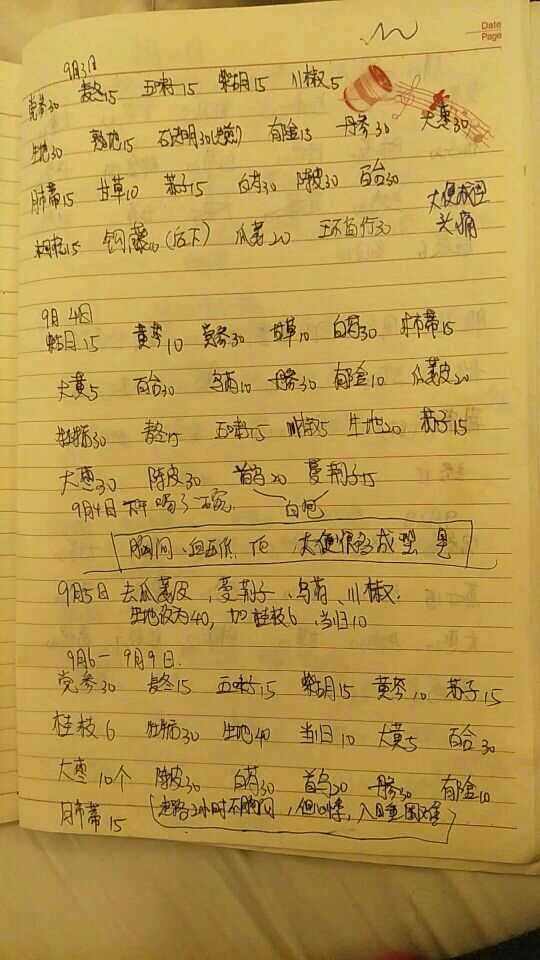 Date
Page
9月3日
党参30 麦冬15 五味15 柴胡15 川椒5
生地30 熟地15 石决明30(先煎) 郁金15 丹参30 大枣30
柿蒂15 甘草10 苏子15 白芍30 陈皮30 百合30
大便成型
头痛
钩藤10(后下) 瓜蒌20 王不留行30
9月4日
柴胡15 黄芩10 党参30 甘草10 白芍30 柿蒂15
大黄5 百合30 乌药10 丹参30 郁金10 瓜蒌皮20
牡蛎30 麦冬15 五味15 川椒5 生地20 苏子15
大枣30 陈皮30 首乌20 蔓荆子15
9月4日 喝了一碗 白芷
胸闷、血压低 大便很多成型
9月5日 去瓜蒌皮,蔓荆子、乌药、川椒.
生地改为40, 加桂枝6 当归10
9月6—9月9日.
党参30 麦冬15 五味子15 柴胡15 黄芩10 苏子15
桂枝6 牡蛎30 生地40 当归10 大黄5 百合30
大枣10个 陈皮30 白芍30 首乌20 丹参30 郁金10
柿蒂15 走路2小时不胸闷,但心悸,入睡困难